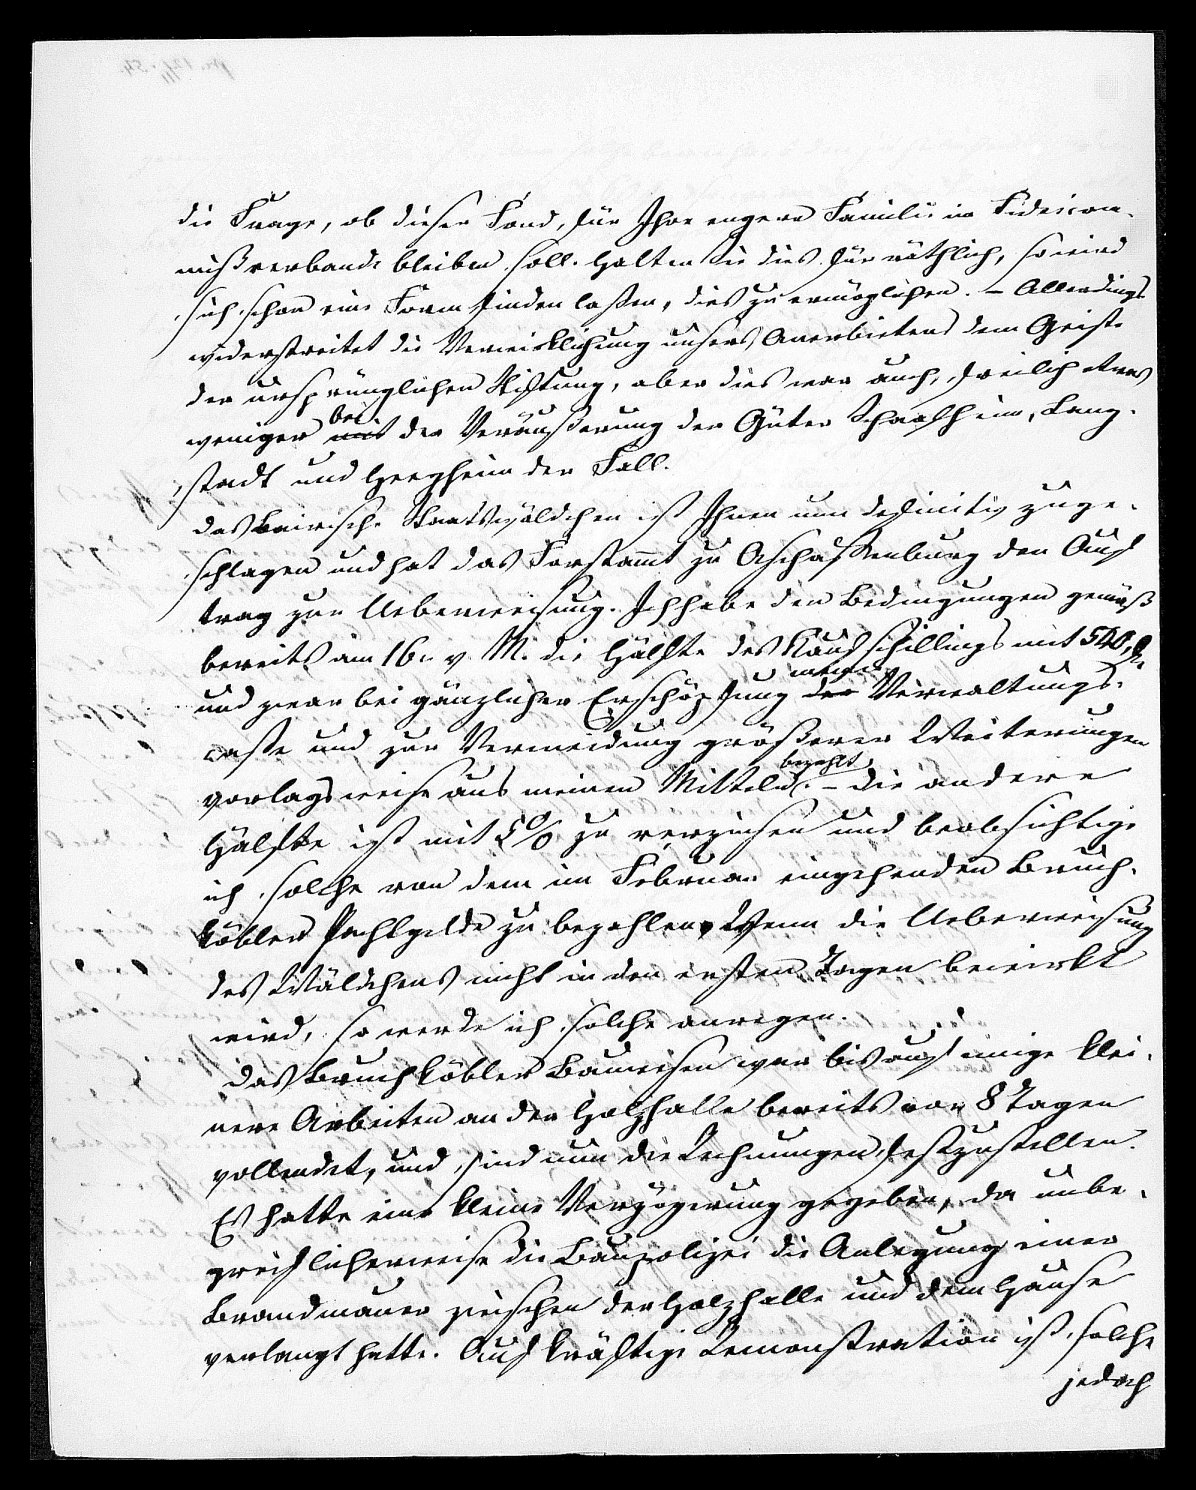 die Frage, ob dieser Fond, für Ihre engere Familie im Fideicom-
mißverbande bleiben soll. Halten Sie dies für räthlich, so wird
sich schon eine Form finden laßen, dies zu ermöglichen. – Allerdings
widerstreitet die Verwirklichung unsers Anerbietens dem Geiste
der ursprünglichen Stiftung, aber dies war auch, freilich etwas
weniger bei der Veräußerung der Güter Schaafheim, Lang-
stadt und Hergheim der Fall.
Das Bairische Staatswäldchen ist Ihnen nun definitiv zuge-
schlagen und hat das Forstamt zu Aschaffenburg den Auf
trag zur Ueberweisung. Ich habe den Bedingungen gemäß
bereits am 16. v. M. die Hälfte des Kaufschillings mit 540 fl.
und zwar bei gänzlicher Erschöpfung meiner Verwaltungs-
casse und zur Vermeidung größerer Weiterungen
vorlagsweise aus meinen Mitteln bezahlt. – Die andere
Hälfte ist mit 5% zu verzinsen und beabsichtige
ich solche von dem im Februar eingehenden Bruch-
köbler Pachtgelde zu bezahlen. Wenn die Ueberweisung
des Wäldchens nicht in den ersten Tagen bewirkt
wird, so werde ich solche anregen.
Das Bruchköbler Bauwesen war bis auf einige klei-
nere Arbeiten an der Holzhalle bereits vor 8 Tagen
vollendet, und sind nun die Rechnungen festzustellen.
Es hatte eine kleine Verzögerung gegeben, da unbe-
greiflicherweise die Baupolizei die Anlegung einer
Brandmauer zwischen der Holzhalle und dem Hause
verlangt hatte. Auf kräftige Remonstration ist solche
jedoch